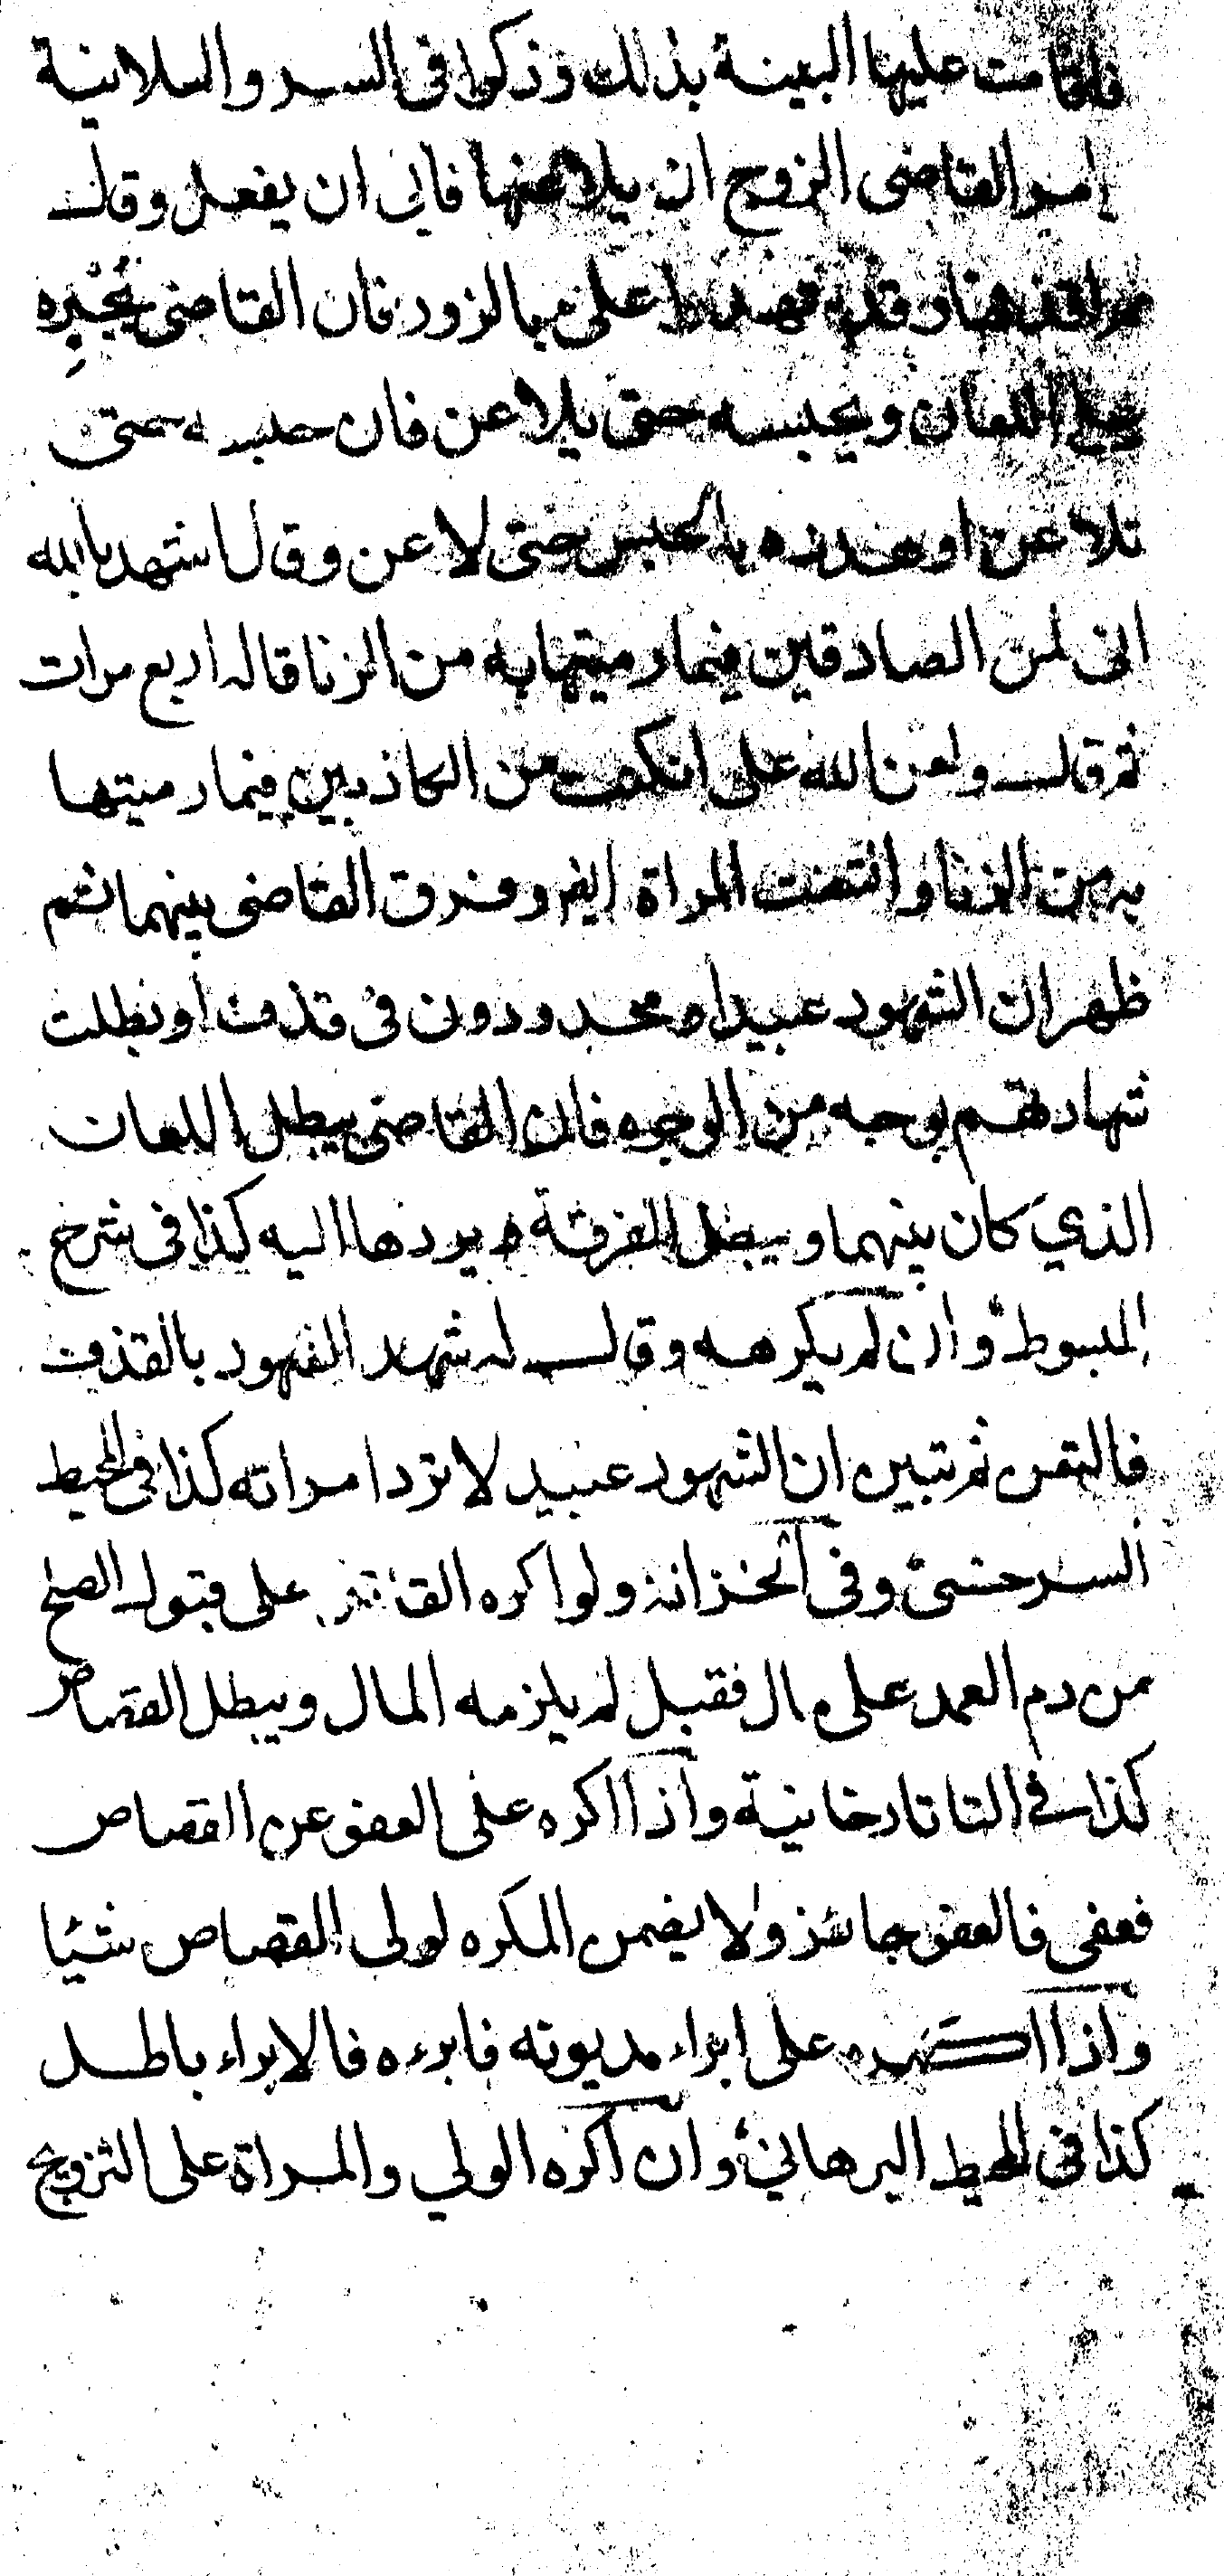 فاقامت عليها البينة بذلك وزكوا فى السر والعلانية
امر القاضى الزوج ان يلاعنها فابى ان يفعل وقال
ما قذفتها وقد شهدوا على بالزور فان القاضى يجبره
على اللعان ويحبسه حتى يلاعن فان حبسه حتى
تلاعن او هدده بالحبس حتى لاعن وقال اشهد بالله
انى لمن الصادقين فيما رميتها به من الزنا قاله اربع مرات
ثم قال ولعن الله على ان كنت من الكاذبين فيما رميتها
به من الزنا والتعنت المراة ايضا وفرق القاضى بينهما ثم
ظهر ان الشهود عبيد او محدودون فى قذف او بطلت
شهادتهم بوجه من الوجوه فان القاضى يبطل اللعان
الذي كان بينهما ويبطل الفرقة ويردها اليه كذا فى شرح
المبسوط وان لم يكرهه وقال له شهد الشهود بالقذف
فالتعن ثم تبين ان الشهود عبيد لا ترد امراته كذا فى المحيط
السرخسى وفى الخزانة ولو اكره على قبول الصلح
من دم العمد على مال فقبل لم يلزمه المال ويبطل القصاص
كذا فى التاتارخانية واذا اكره على العفو عن القصاص
فعفى فالعفو جائز ولا يضمن المكره لولى القصاص شيئا
واذا اكرهه على ابراء مديونه فابرءه فالابراء باطل
كذا فى المحيط البرهاني وان اكره الولي والمراة على التزويج